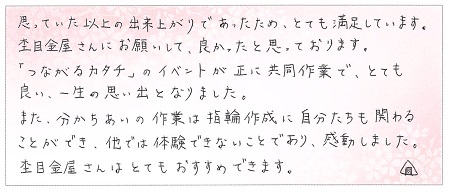 思っていた以上の出来上がりであったため、とても満足しています。
杢目金屋さんにお願いして、良かったと思っております。
「つながるカタチ」のイベントが正に共同作業で、とても
良い、一生の思い出となりました。
また、分かちあいの作業は指輪作成に自分たちも関わる
ことができ、他では体験できないことであり、感動しました。
杢目金屋さんはとてもおすすめできます。